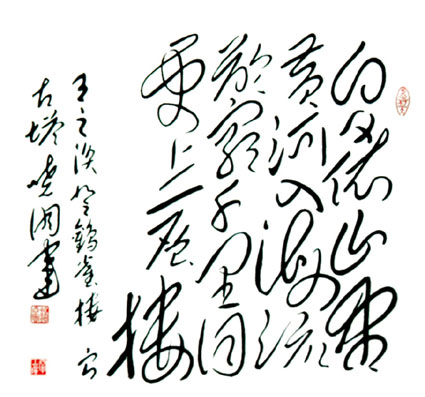 白日依山尽
黄河入海流
欲穷千里目
更上一层楼
王之涣登鹳雀楼
古塔晓書